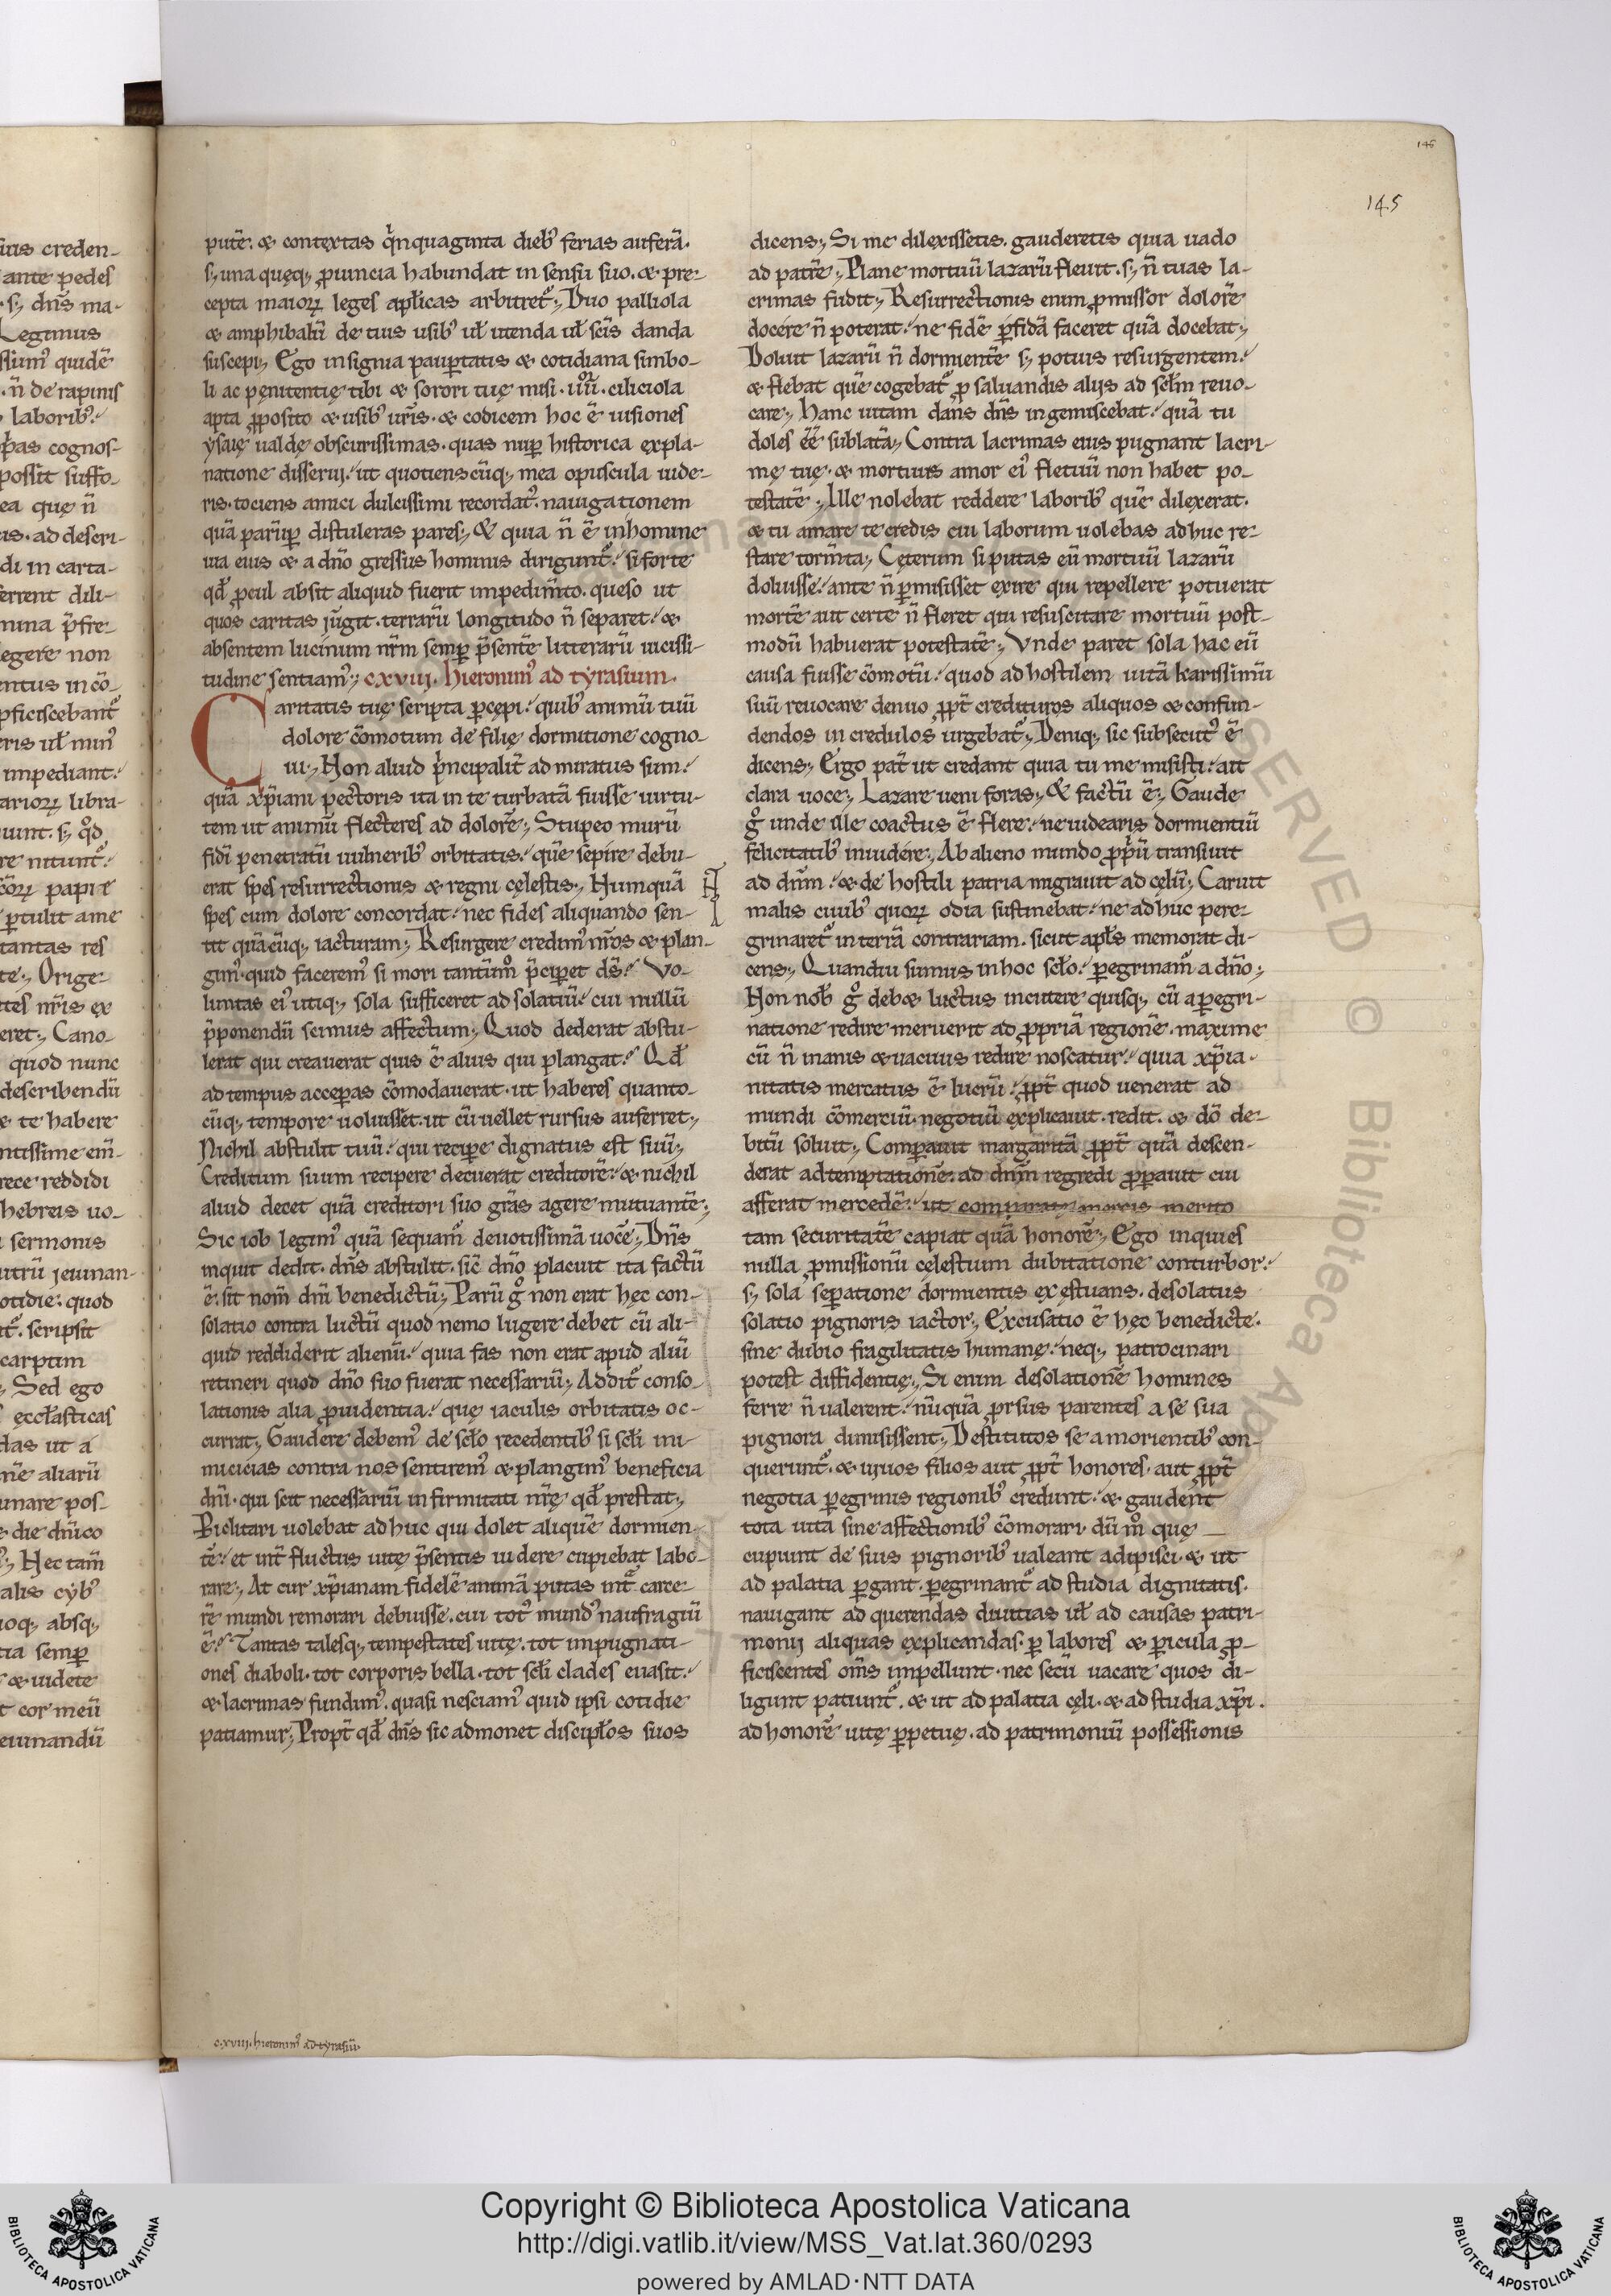 145
145
putẽ. & contextas q̇nquaginta dieb᷒ ferias auferã.
s; una quęq; ꝓuincia habundat in sensu suo. & pre-
cepta maioꝝ leges aplicas arbitret᷒; Duo palliola
& amphibalũ de tuis usib᷒ uł utenda uł scĩs danda
suscepi; Ego insignia pauꝑtatis & cotidiana simbo-
li ac penitentię tibi & sorori tuę misi. ciliciola
apta ꝓposito & usib᷒ uŕis. & codicem hoc ẽ uisiones
ysaię ualde obscurissimas. quas nuꝑ historica expla-
natione disserui. ut quotienscũq; mea opuscula uide-
ris. tociens amici dulcissimi recordat᷒. nauigationem
quã parũꝑ distuleras pares; & quia ñ ẽ in homine
uia eius & a dño gressus hominis dirigunt᷒. si forte
qđ ꝓcul absit aliquid fuerit impedim̃to. queso ut
quos caritas jũgit. terrarũ longitudo ñ separet. &
absentem lucinum nr̃m semꝑ p̃sentẽ litterarũ uicissi-
tudine sentiam᷒; cxviij. hieronim᷒ ad tyrasium.
Caritatis tuę scripta ꝑcepi. quib᷒ animũ tuũ
dolore cõmotum de filię dormitione cogno-
ui; Non aliud p̃ncipalit̃ ad miratus sum.
quã xp̃iani pectoris ita in te turbatã fuisse uirtu-
tem ut animũ flecteres ad dolorẽ; Stupeo murũ
fidi penetratũ uulnerib᷒ orbitatis. quẽ sepire debu-
erat spes resurrectionis & regni cęlestis; Numquã
spes cum dolore concordat. nec fides aliquando sen-
tit quãcũq; iacturam; Resurgere credim᷒ nŕos & plan-
gim᷒. quid facerem᷒ si mori tantũm° p̃ciꝑet ds̃. Vo-
luntas ei᷒ utiq; sola sufficeret ad solatiũ. cui nullũ
p̃ponendũ scimus affectum; Quod dederat abstu-
lerat qui creauerat quis ẽ alius qui plangat. Qđ
ad tempus acceꝑas cõmodauerat. ut haberes quanto-
cũq; tempore uoluisset. ut cũ uellet rursus auferret;
Nichil abstulit tuũ. qui reciꝑe dignatus est suũ;
Creditum suum recipere decuerat creditorẽ. & nichil
aliud decet quã creditori suo gr̃as agere mutuantẽ;
Sic iob legim᷒ quã sequam᷒ deuotissimã uocẽ; Dñs
inquit dedit. dñs abstulit. sic̃ dño placuit ita factũ
ẽ. sit nom̃ dñi benedictũ; Parũ g° non erat hęc con-
solatio contra luctũ quod nemo lugere debet cũ ali-
quid reddiderit alienũ. quia fas non erat apud aliũ
retineri quod dño suo fuerat necessariũ; Addit᷒ conso-
lationis alia ꝓuidentia. que iaculis orbitatis oc-
currat; Gaudere debem᷒ de scło recedentib᷒ si scłi ini-
micicias contra nos sentirem᷒ & plangim᷒ beneficia
dñi. qui scit necessariũ infirmitati nr̃ę qđ prestat;
Piclitari uolebat ad huc qui dolet aliquẽ dormien-
tẽ. et int̃ fluctus uitę p̃sentis uidere cupiebat labo-
rare; At cur xp̃ianam fidelẽ animã putas int̃ carce-
rẽ mundi remorari debuisse. cui tot᷒ mund᷒ naufragiũ
ẽ. Tantas talesq; tempestates uitę. tot impugnati-
ones diaboli. tot corporis bella. tot scłi clades euasit.
& lacrimas fundim᷒. quasi nesciam᷒ quid ipsi cotidie
patiamur; Propt̃ qđ dñs sic admonet discipłos suos
dicens; Si me dilexissetis. gauderetis quia uado
ad patrẽ; Plane mortuũ lazarũ fleuit. s; ñ tuas la-
crimas fudit; Resurrectionis enim ꝓmissor dolorẽ
docere ñ poterat. ne fidẽ ꝑfidã faceret quã docebat;
Doluit lazarũ ñ dormientẽ s; potuis resurgentem.
& flebat quẽ cogebat᷒ ꝓ saluandis alijs ad scłm reuo-
care; Hanc uitam dans dñs ingemiscebat. quã tu
doles ẽẽ sublatã; Contra lacrimas eius pugnant lacri-
mę tuę. & mortuus amor ei᷒ fletuũ non habet po-
testatẽ; Ille nolebat reddere laborib᷒ quẽ dilexerat.
& tu amare te credis cui laborum uolebas ad huc re-
stare torm̃ta; Cęterum si putas eũ mortuũ lazarũ
doluisse. ante ñ ꝑmisisset exire qui repellere potuerat
mortẽ aut certe ñ fleret qui resuscitare mortuũ post-
modũ habuerat potestatẽ; Vnde paret sola hac eũ
causa fuisse cõmotũ. quod ad hostilem uitã karissimũ
suũ reuocare denuo ꝓpt̃ credituros aliquos & confun-
dendos in credulos urgebat᷒; Deniq; sic subsecut᷒ ẽ
dicens; Ergo pat̃ ut credant quia tu me misisti. ait
clara uoce; Lazare ueni foras; & factũ ẽ; Gaude
g° unde ille coactus ẽ flere. ne uidearis dormientiũ
felicitatib᷒ inuidere; Ab alieno mundo ꝓp̃ũ transiuit
ad dñm. & de hostili patria migrauit ad cęlũ; Caruit
malis ciuib᷒ quoꝝ odia sustinebat. ne ad huc pere-
grinaret᷒ in terrã contrariam. sicut apłs memorat di-
cens; Quandiu sumus in hoc scło. ꝑegrinam᷒ a dño;
Non nob̃ g° deb& luctus incutere quisq; cũ a ꝑegri-
natione redire meruerit ad ꝓpriã regionẽ. maxime
cũ ñ inanis & uacuus redire noscatur. quia xp̃ia-
nitatis mercatus ẽ lucrũ. ꝓpt̃ quod uenerat ad
mundi cõmerciũ. negotiũ explicauit. redit. & dõ de-
bitũ soluit; Comparauit margaritã ꝓpt̃ quã descen-
derat ad temptationẽ. ad dñm regredi ꝓꝑauit cui
afferat mercedẽ. ut comparatę mercis merito
tam securitatẽ capiat quã honorẽ; Ego inquies
nulla ꝓmissionũ cęlestium dubitatione conturbor.
s; sola seꝑatione dormientis exęstuans. desolatus
solatio pignoris iactor; Excusatio ẽ hęc benedicte.
sine dubio fragilitatis humanę. neq; patrocinari
potest diffidentię; Si enim desolationẽ homines
ferre ñ ualerent. nũquã ꝓrsus parentes a se sua
pignora dimisissent; Destitutos se a morientib᷒ con-
querunt᷒. & uiuos filios aut ꝓpt̃ honores. aut ꝓpt̃
negotia ꝑegrinis regionib᷒ credunt. & gaudent
tota uita sine affectionib᷒ cõmorari. dũ m° quę
cupiunt de suis pignorib᷒ ualeant adipisci. & ut
ad palatia ꝑgant. ꝑegrinant᷒ ad studia dignitatis.
nauigant ad querendas diuitias uł ad causas patri-
monij aliquas explicandas. ꝑ labores & ꝑicula ꝓ-
ficiscentes om̃s impellunt. nec secũ uacare quos di-
ligunt patiunt᷒. & ut ad palatia cęli. & ad studia xp̃i.
ad honorẽ uitę ꝑpetuę. ad patrimoniũ possessionis
c.xviij. hieronim᷒ ad tyrasiũ.
Copyright © Biblioteca Apostolica Vaticana
http://digi.vatlib.it/view/MSS_Vat.lat.360/0293
powered by AMLAD·NTT DATA
BIBLIOTECA APOSTOLICA VATICANA
BIBLIOTECA APOSTOLICA VATICANA